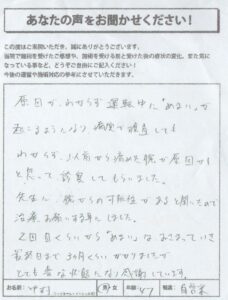 あなたの声をお聞かせください！
この度はご来院いただき、誠にありがとうございます。
当院で施術を受けたご感想や、施術を受ける前と受けた後の症状の変化、また気に
なっている事など、どうぞご自由にご記入ください！
今後の運営や施術対応の参考にさせていただきます。
原因がわからず運転中に"めまい"が
起こるようになり病院で検査しても
わからず、1ヶ月前から痛めた腕が原因かも
と思って診察してもらいました。
先生に腕からの可能性があると聞いたので
治療お願いする事にしました。
2回目くらいから"めまい"はおさまっていき
最終日まで3ヶ月くらいかかりましたが
とても楽な状態になり感謝しています。
お名前
男・女
年齢 47
職業 自営業